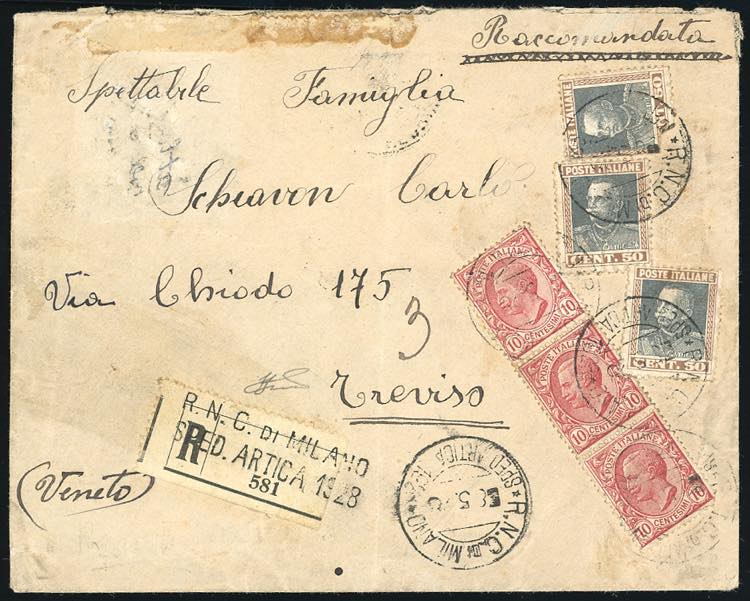 Raccomandata
Spettabile Famiglia
Schiavon Carlo
Via Chiodo 175
3
Treviso
(Veneto)
R. N. C. di MILANO
SPED. ARTICA 1928
R
581
R.N.C. di MILANO
SPED ARTICA
5
POSTE ITALIANE
CENT. 50
POSTE ITALIANE
CENT. 50
POSTE ITALIANE
CENT. 50
POSTE ITALIANE
10 CENTESIMI 10
POSTE ITALIANE
10 CENTESIMI 10
POSTE ITALIANE
10 CENTESIMI 10
R.N.C. di